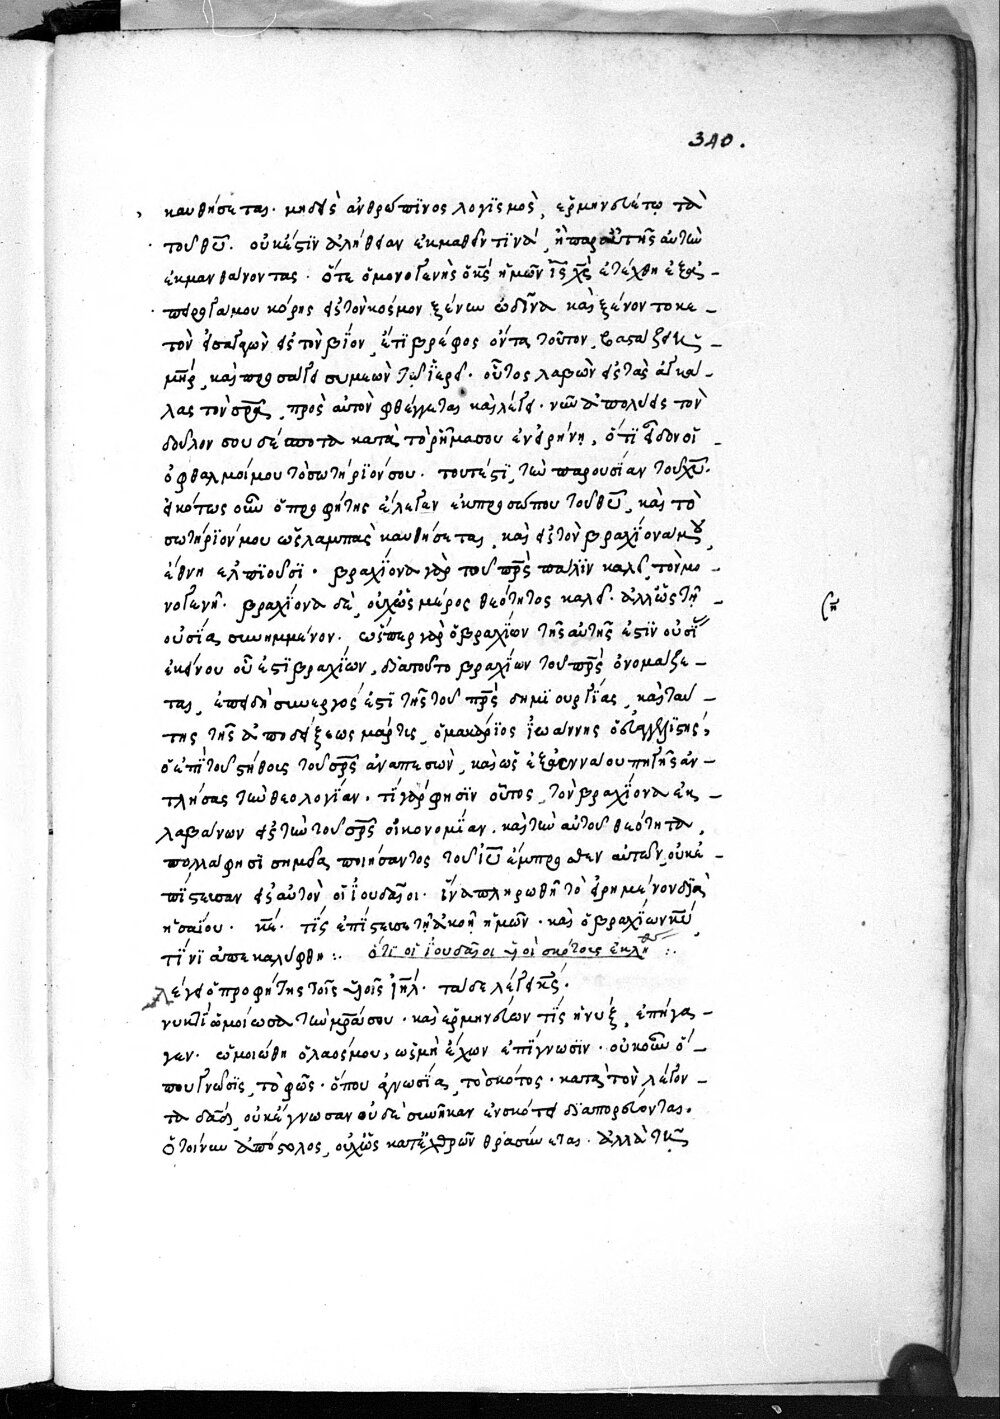 340.
καυθήσεται. μηδεὶς ἀνθρώπϊνος λογϊσμὸς, ἑρμηνευέτω τὰ
τοῦ θῦ. οὐκέστϊν ἀλήθειαν ἐκμαθεῖν τϊνὰ, ἢ παρ αὐτῆς αὐτὼ
ἐκμανθαίνοντας. ὅτε ὁ μονογενὴς ὁ κς ἡμῶν ἰς χς ἐτέχθη ἐξ ἀ-
πειρογάμου κόρης εἰς τὸν κόσμον ξένην ὠδῖνα καὶ ξένον τοκε-
τὸν εἰσαγαγὼν εἰς τὸν βίον, ἔτϊ βρέφος ὄντα τοῦτον, βαστάζει ἡ
μηρ, καὶ προσάγει συμεὼν τῷ ἱερεῖ. οὗτος λαβὼν εἰς τὰς ἀγκά-
λας τὸν σρα, πρὸς αὐτὸν φθέγγεται καὶ λέγει. νῦν ἀπολύεις τὸν
δοῦλον σου δέσποτα κατὰ τὸ ρῆμα σου ἐν εἰρήνῃ, ὅτϊ εἶδον οἱ
ὀφθαλμοί μου τὸ σωτήρϊόν σου. τουτέστϊ, τὼ παρουσίαν τοῦ χῦ.
εἰκότως οὖν ὁ προφήτης ἔλεγεν ἐκ προσώπου τοῦ θῦ, καὶ τὸ
σωτήρϊόν μου ὡς λαμπὰς καυθήσεται, καὶ εἰς τὸν βραχίονά μου
ἔθνη ἐλπϊοῦσϊ. βραχϊονα γὰρ τοῦ πρς πάλϊν καλεῖ, τὸν μο-
νογενῆ. βραχϊονα δὲ, οὐχ ὡς μέρος θεότητος καλεῖ. ἀλλ ὡς τῇ
οὐσίᾳ συνημμένον. ὥσπερ γὰρ ὁ βραχϊων τῆς αὐτῆς ἐστϊν οὐσί
ἐκείνου οὗ ἐστϊ βραχϊων, διὰ τοῦτο βραχϊων τοῦ πρς ὀνομάζε-
ται, ἐπειδὴ συνεργός ἐστϊ τῆς τοῦ πρς δημϊουργΐας, καὶ ταύ-
της τῆς ἀποδείξεως μάρτυς, ὁ μακάρϊος ϊωάννης ὁ εὐαγγελιστὴς,
ὁ ἐπὶ τοῦ στήθους τοῦ σρς ἀναπεσὼν, καὶ ὡς ἐξ ἀεννάου πηγῆς ἀν-
τλήσας τὼ θεολογίαν. τί γάρ φησϊν οὗτος, τὸν βραχϊονα ἐκ-
λαβαίνων εἰς τὼ τοῦ σρς οἰκονομΐαν, καὶ τὼ αὐτοῦ θεότητα,
πολλά φησι σημεῖα ποιήσαντος τοῦ ιῦ ἔμπροσθεν αὐτῶν, οὐκ ἐ-
πϊστευσαν εἰς αὐτὸν οἱ ϊουδαῖοι. ἵνα πληρωθῇ τὸ εἰρημένον διὰ
ἡσαΐου. κε. τϊς ἐπϊστευσε τῇ ἀκοῇ ἡμῶν. καὶ ὁ βραχϊων κῦ
τίνι ἀπεκαλύφθη :. ὅτϊ οἱ ϊουδαῖοι υἱοὶ σκότους ἐκλή :.
λέγει ὁ προφήτης τοῖς υἱοῖς ιηλ. τάδε λέγει κς.
νυκτὶ ὡμοίωσα τὼ μρα σου. καὶ ἑρμηνεύων τϊς ἡ νυξ, ἐπήγα-
γεν. ὡμοιώθη ὁ λαός μου, ὡς μὴ ἔχων ἐπϊγνωσϊν. οὐκοῦν ὅ-
που γνῶσϊς, τὸ φῶς. ὅπου ἀγνωσία, τὸ σκότος. κατὰ τὸν λέγον-
τα δαδ, οὐκ ἔγνωσαν οὐδὲ συνῆκαν ἐν σκότει διαπορεύονται.
ὁ τοίνυν ἀπόστολος, οὐχ ὡς κατ ἐχθρῶν θρασύνεται. ἀλλὰ τῆς